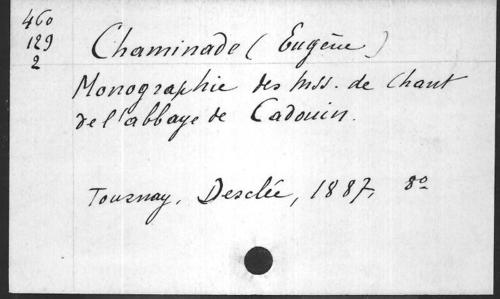 460
129
2
Chaminade (Eugène)
Monographie des mss. de Chant
de l'abbaye de Cadouin.
Tournay, Desclée, 1887, 8o